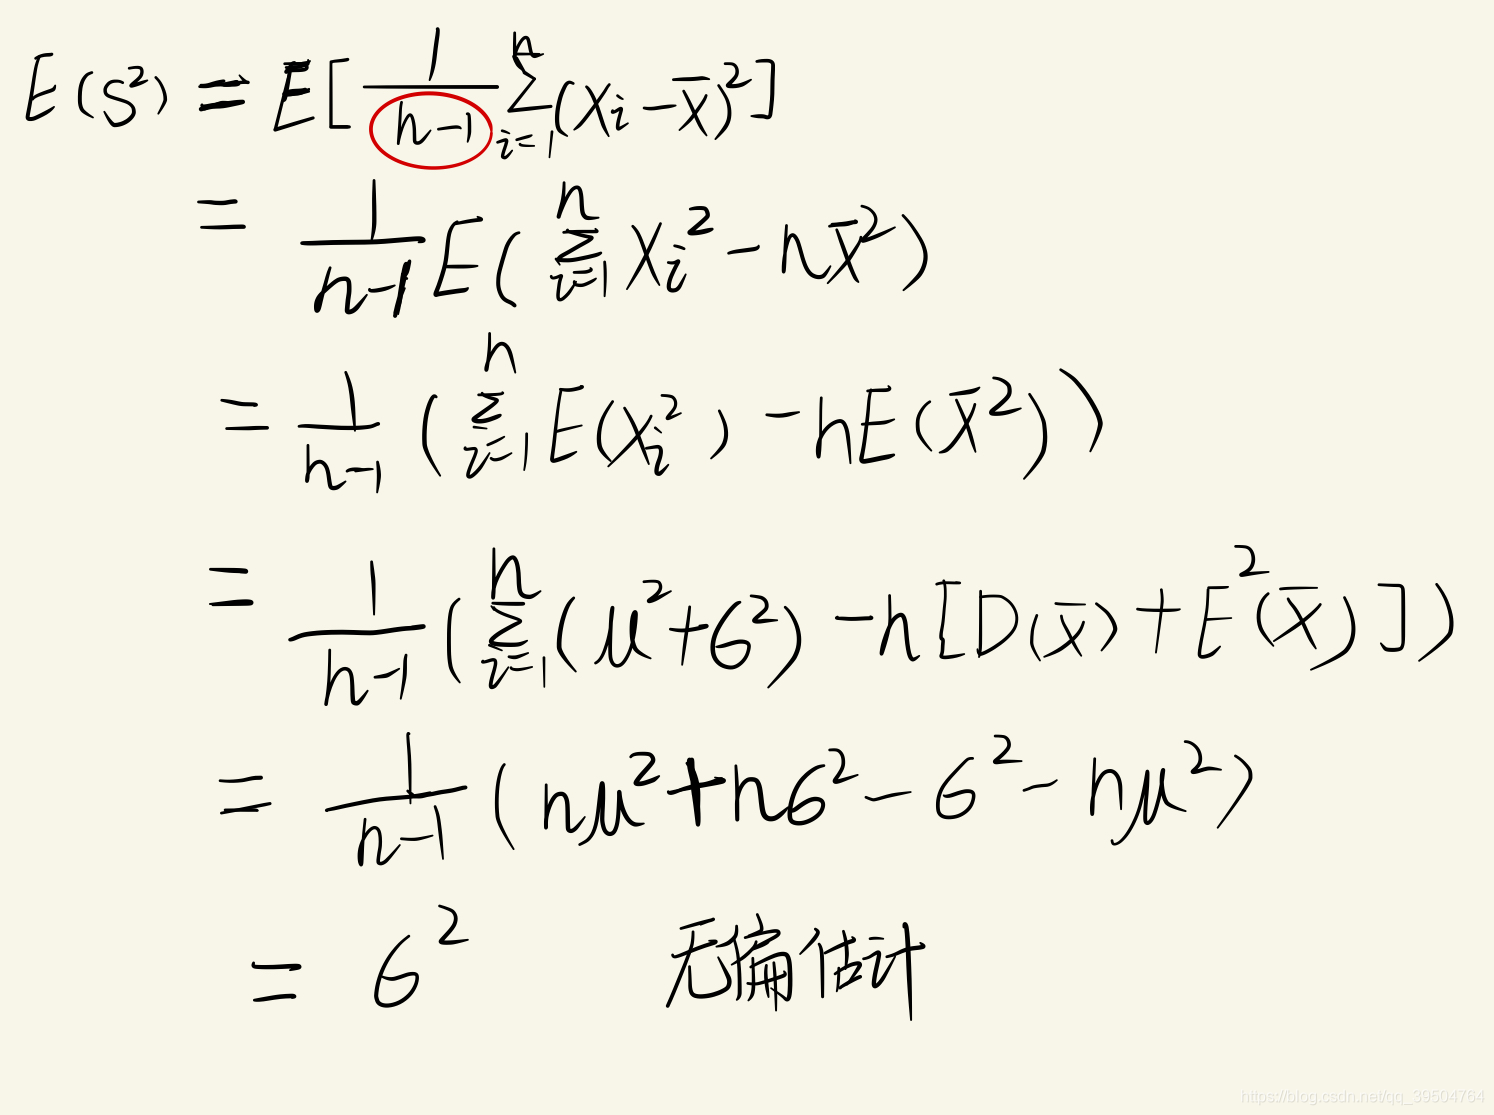 E(S²) = E[1/(n-1) Σ_{i=1}^{n} (Xi - X̄)²]
= 1/(n-1) E(Σ_{i=1}^{n} Xi² - nX̄²)
= 1/(n-1) (Σ_{i=1}^{n} E(Xi²) - nE(X̄²))
= 1/(n-1) (Σ_{i=1}^{n} (μ²+σ²) - n[D(X̄) + E²(X̄)])
= 1/(n-1) (nμ² + nσ² - σ² - nμ²)
= σ² 无偏估计
https://blog.csdn.net/qq_39504764